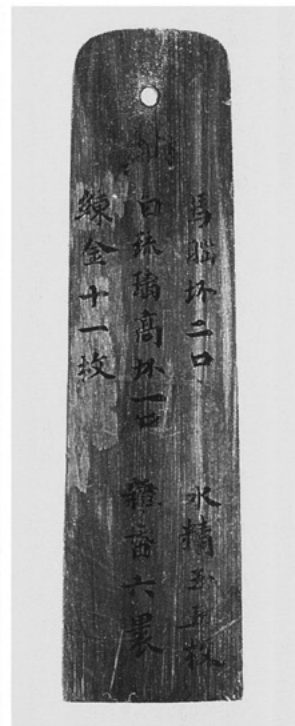 納
馬腦坏二口　水精玉五枚
白琉璃高坏一口　六裹
練金十一枚